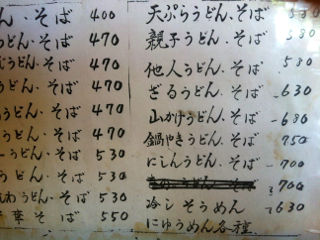 ん・そば 400
うどん・そば 470
うどん・そば 470
うどん・そば 470
うどん・そば 470
うどん・そば 470
うどん・そば 530
うどん・そば 530
うどん・そば 530
そば 550
天ぷらうどん・そば 580
親子うどん・そば 580
他人うどん・そば 580
ざるうどん・そば 630
山かけうどん・そば 680
鍋やきうどん・そば 750
にしんうどん・そば 700
700
冷しそうめん 630
にゅうめん各種